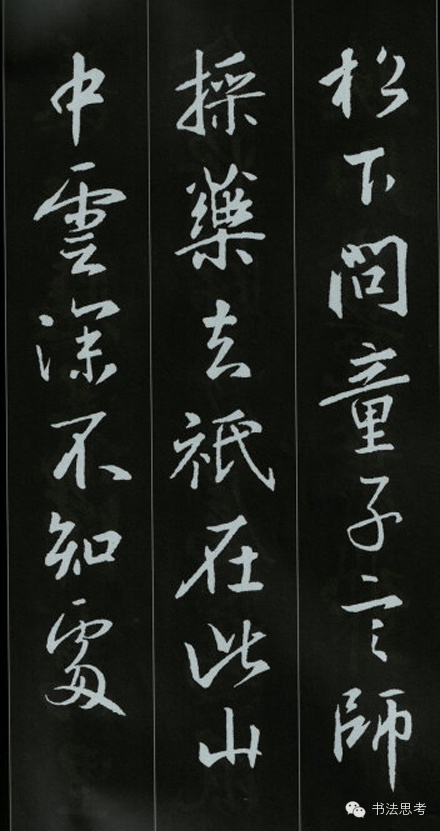 松下問童子言師
採藥去祇在此山
中雲深不知處
书法思考